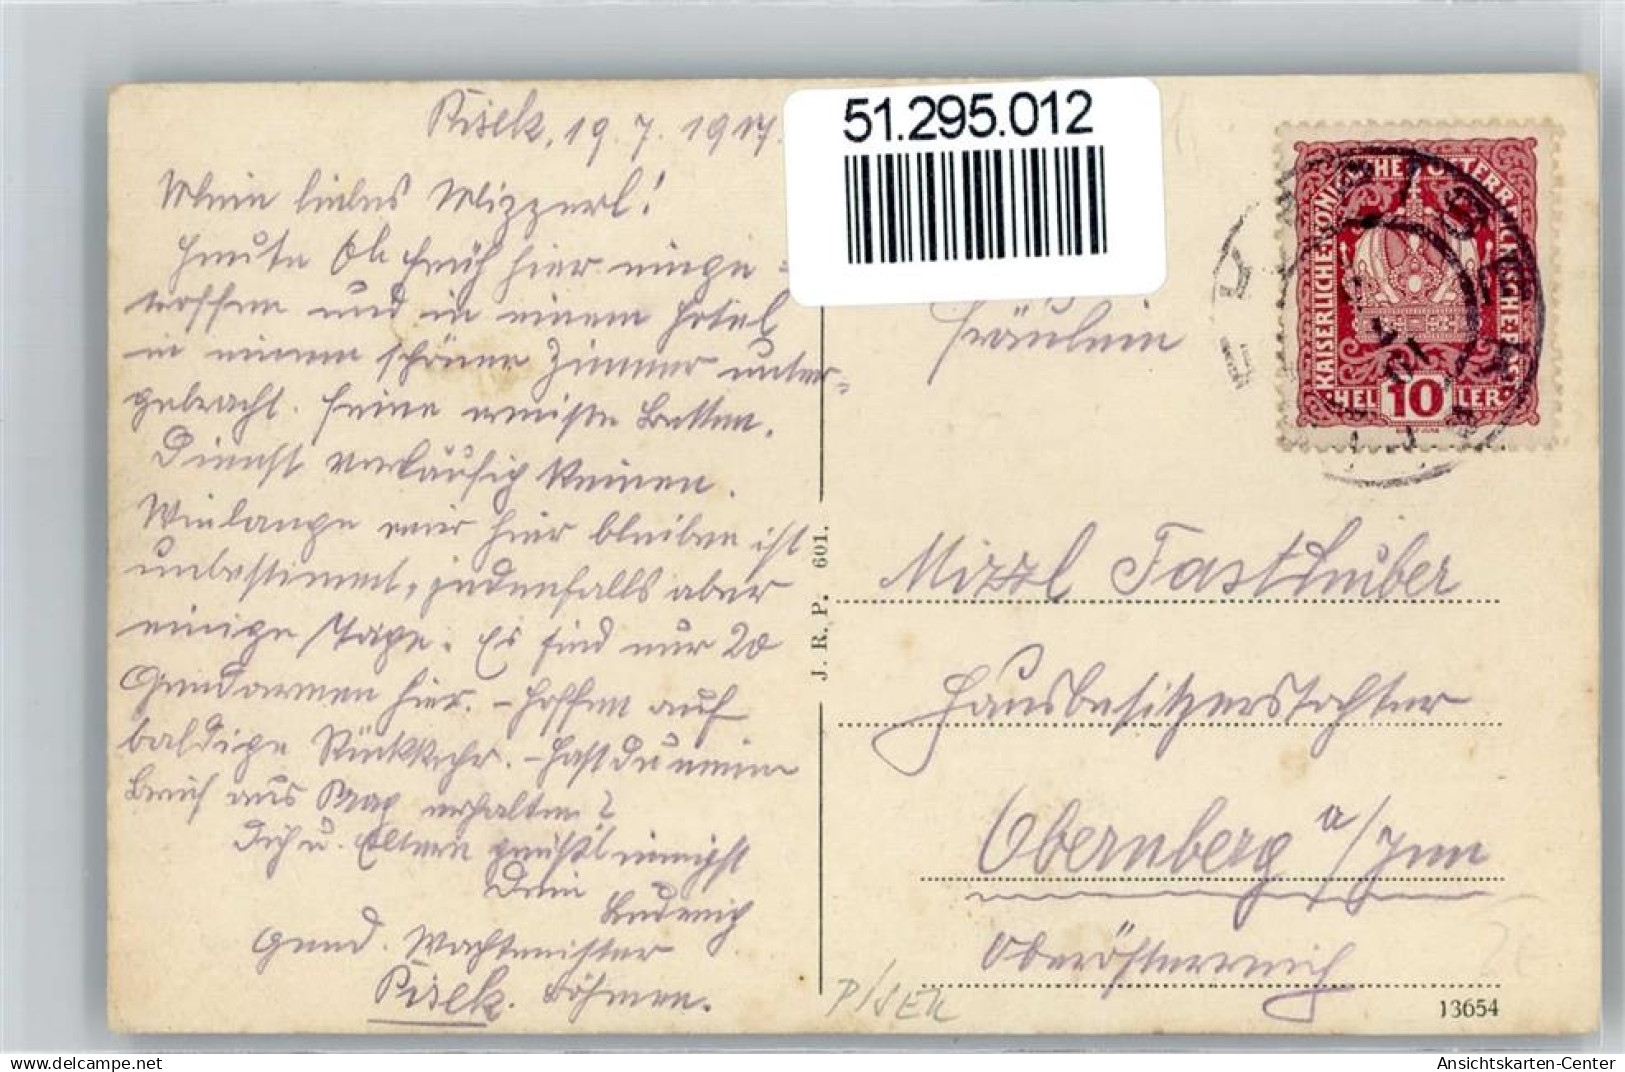 Pisek, 19. 7. 1917.
Mein liebes Mizzerl!
Heute 6h früh hier einge=
troffen und in einem Hotel
in einem schönen Zimmer unter=
gebracht. Feine Betten.
Dienst vorläufig keinen.
Wielange wir hier bleiben ist
unbestimmt, jedenfalls aber
einige Tage. Es sind nur 20
Gendarmen hier. - Hoffen auf
baldige Rückkehr. - Hast Du meinen
Brief aus Prag erhalten?
Dich u. Eltern grüßt innigst
Dein
Ludwig
Gend. Wachtmeister
Pisek. Böhmen.
51.295.012
KAISERLICHE KÖNIGLICHE ÖSTERREICHISCHE POST
HELLER 10
Fräulein
Mizzl Fasthuber
Hausbesitzerstochter
Obernberg a/Inn
Oberösterreich
J. R. P. 601.
PISEK
13654
Ansichtskarten-Center